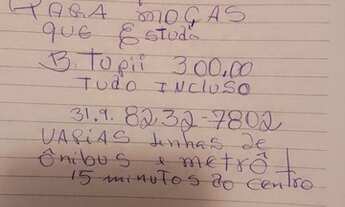 PARA MOÇAS
QUE Estuda
B. Tupii 300,00
TUDO INCLUSO
31.9.8232-7802
VARIAS linhas de
ônibus e metrô
15 minutos do centro